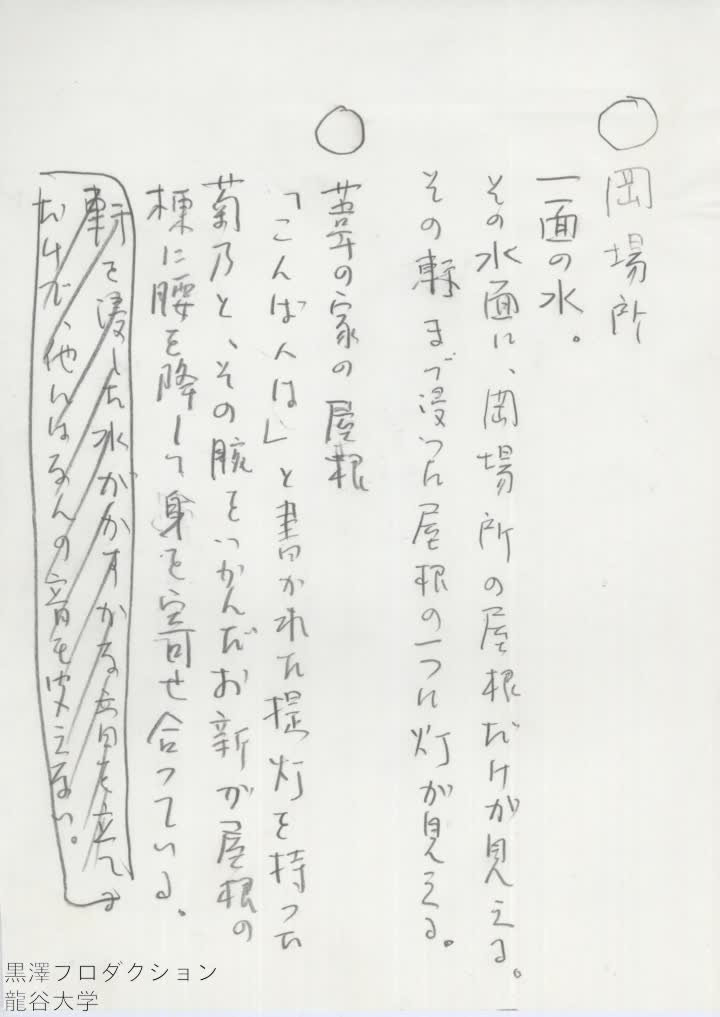 ○ 岡場所
一面の水。
その水面に、岡場所の屋根だけが見える。
その軒まで浸った屋根の一つに灯が見える。
○ 葦の家の屋根
「こんばんは」と書かれた提灯を持った
菊乃と、その腕をつかんだお新が屋根の
棟に腰を降して身を寄せ合っている。
軒を浸した水がかすかな音を立てる
だけで、他にはなんの音も聞えない。
黒澤プロダクション
龍谷大学